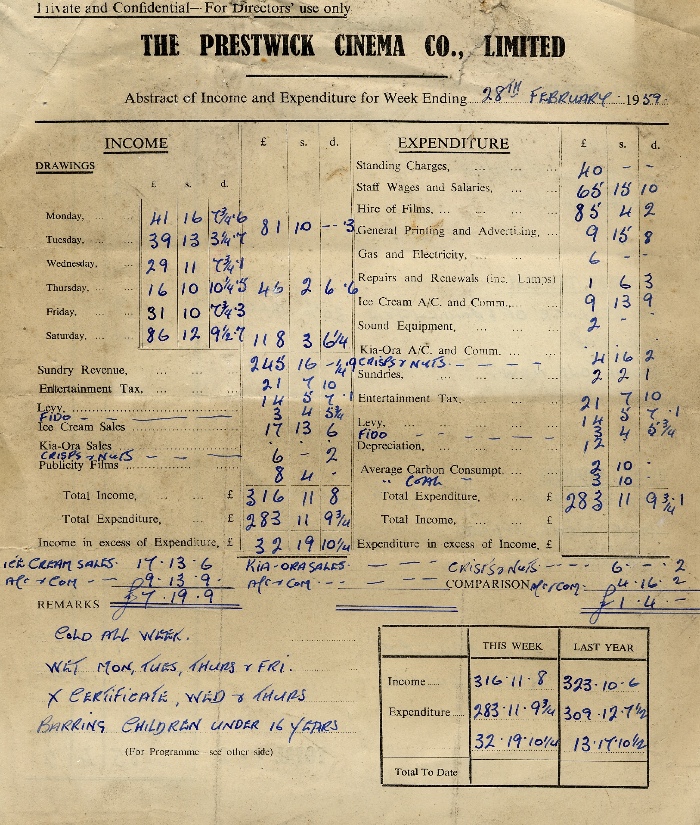 Private and Confidential—For Directors' use only
THE PRESTWICK CINEMA CO., LIMITED
Abstract of Income and Expenditure for Week Ending 28TH FEBRUARY 1959
INCOME £ s. d.
DRAWINGS
£ s. d.
Monday, 41 16 7¾·6
Tuesday, 39 13 3¼·7 81 10 –·3
Wednesday, 29 11 7¾·1
Thursday, 16 10 10¼·5 46 2 6·6
Friday, 31 10 7¾·3
Saturday, 86 12 9½·7 118 3 6¼
245 16
Sundry Revenue, 21 7 10
Entertainment Tax, 14 5 7·1
Levy,
FIDO 3 4 5¾
Ice Cream Sales 17 13 6
Kia-Ora Sales -
CRISPS & NUTS 6 - 2
Publicity Films 8 4 -
Total Income, £ 316 11 8
Total Expenditure, £ 283 11 9¾
Income in excess of Expenditure, £ 32 19 10¼
EXPENDITURE £ s. d.
Standing Charges, 40 - -
Staff Wages and Salaries, 65 15 10
Hire of Films, 85 4 2
General Printing and Advertising, 9 15 8
Gas and Electricity, 6 -
Repairs and Renewals (inc. Lamps) 1 6 3
Ice Cream A/C. and Comm., 9 13 9
Sound Equipment, 2 -
Kia-Ora A/C. and Comm.
CRISPS & NUTS 4 16 2
Sundries, 2 2 1
Entertainment Tax, 21 7 10
Levy, 14 5 7·1
FIDO 3 4 5¾
Depreciation, 12
Average Carbon Consumpt. 2 10 -
" COAL 3 10 -
Total Expenditure, £ 283 11 9¾·1
Total Income, £
Expenditure in excess of Income, £
ICE CREAM SALES 17·13·6 KIA-ORA SALES CRISPS & NUTS 6 - 2
A/C & COM 9·13·9 A/C & COM COMPARISON A/C & COM 4·16·2
REMARKS £7·19·9 £1·4·–
COLD ALL WEEK.
WET MON, TUES, THURS & FRI.
X CERTIFICATE, WED & THURS
BARRING CHILDREN UNDER 16 YEARS
(For Programme—see other side)
THIS WEEK LAST YEAR
Income 316·11·8 323·10·6
Expenditure 283·11·9¾ 309·12·7½
32·19·10¼ 13·17·10½
Total To Date